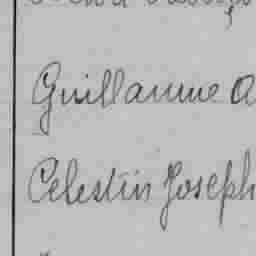 Guillaume A
Celestin Joseph